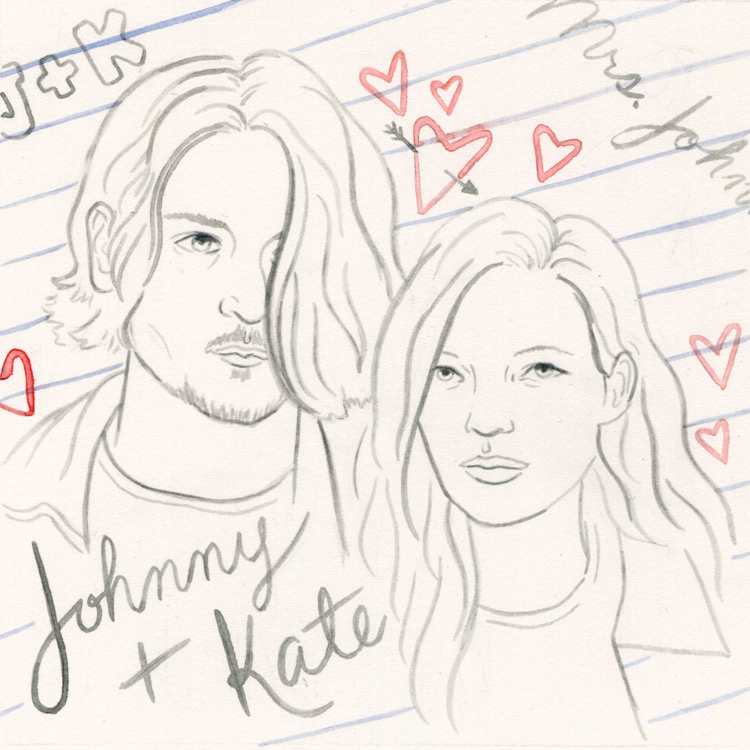 J+K
Mrs. John
Johnny
+ Kate